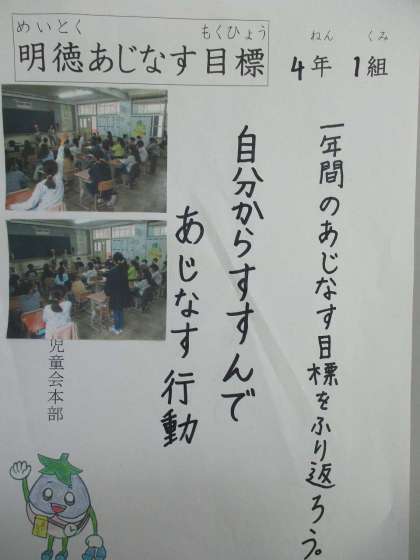 めいとく
もくひょう
明徳あじなす目標
ねん
くみ
4年 1組
一年間のあじなす目標をふり返ろう。
自分からすすんで
あじなす行動
児童会本部